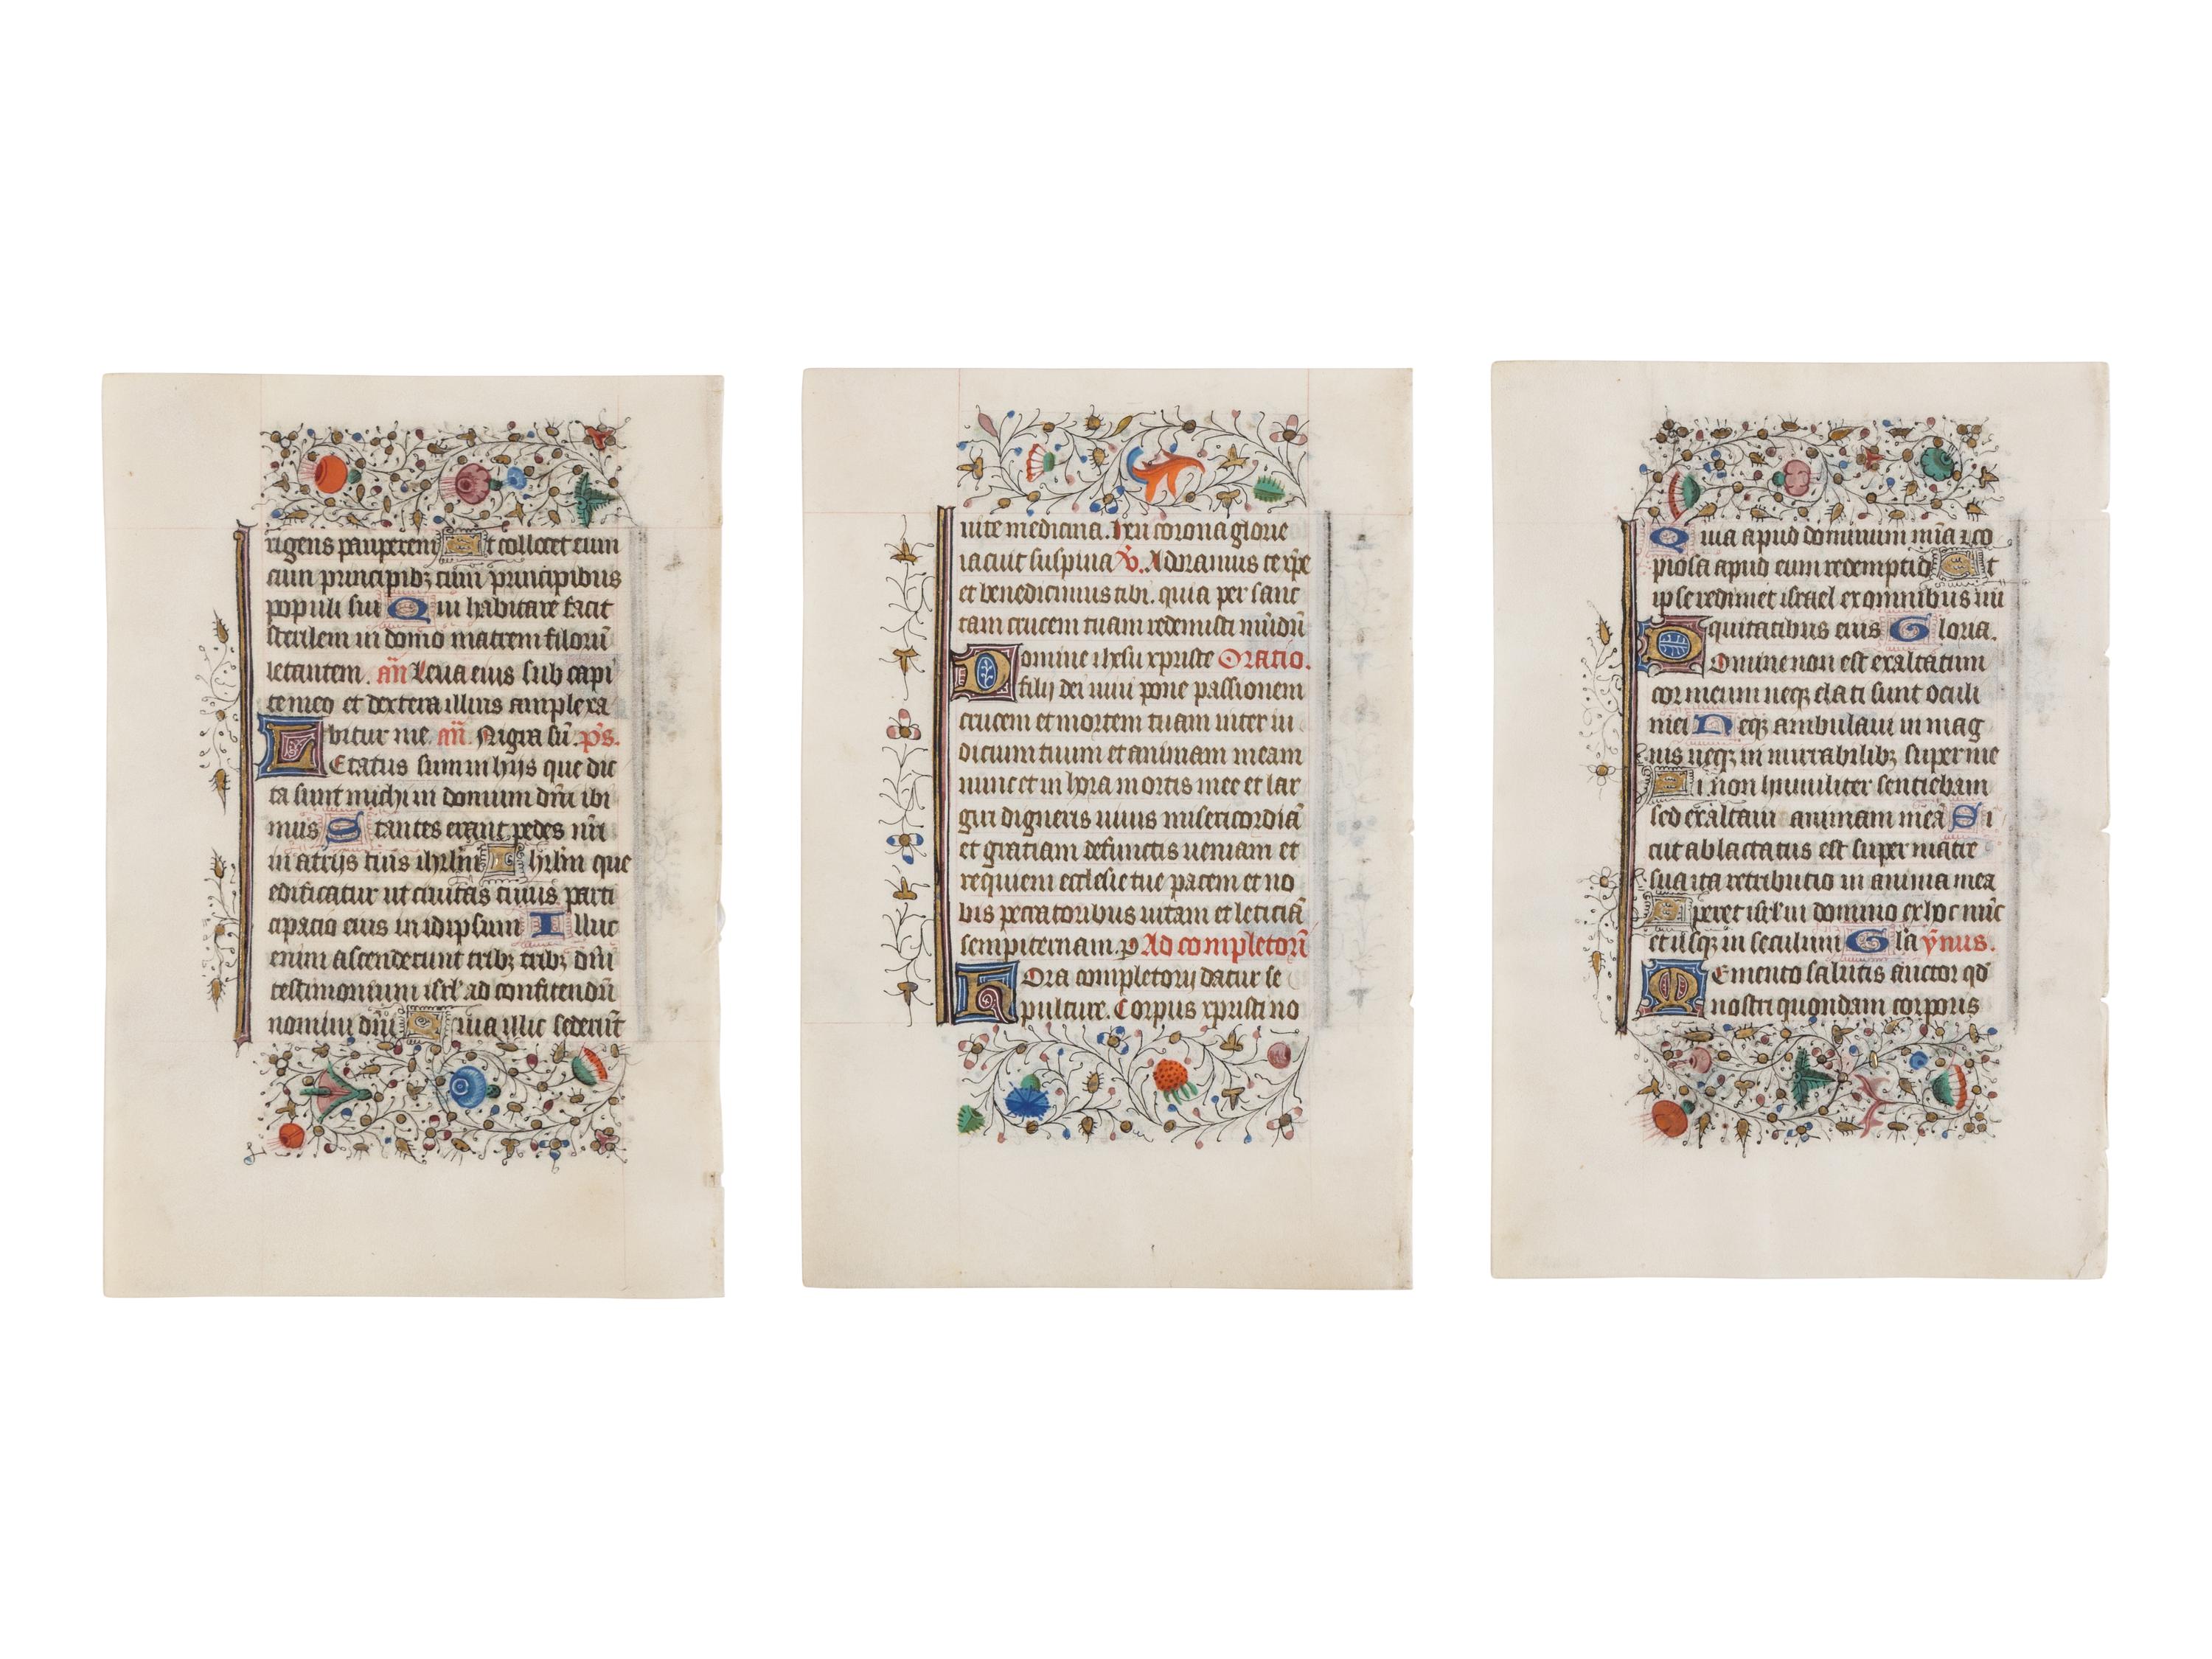 rigens pauperem Et collocet eum
cum principibꝫ cum principibus
populi sui Qui habitare facit
sterilem in domo matrem filiorū
letantem. añ Leua eius sub capi
te meo et dextera illius amplexa
bitur me. añ. Nigra sū. p̄s.
LEtatus sum in hijs que dic
ta sunt michi in domum dn̄i ibi
mus Stantes erant pedes nr̄i
in atrijs tuis ihrl̄m Ihrl̄m que
edificatur ut ciuitas cuius parti
cipacio eius in idipsum Illuc
enim ascenderunt tribꝫ tribꝫ dn̄i
testimonium isrl̄ ad confitendū
nomini dn̄i Quia illic sederūt
uite medicina. Ixii corona glorie
iacuit supina v̄. Adoramus te xp̄e
et benedicimus tibi. quia per sanc
tam crucem tuam redemisti mūdū
Domine ihesu xpriste Oratio.
filij dei uiui pone passionem
crucem et mortem tuam inter iu
dicium tuum et animam meam
nunc et in hora mortis mee et lar
giri digneris uiuis misericordiā
et gratiam defunctis ueniam et
requiem ecclesie tue pacem et no
bis peccatoribus uitam et leticiā
sempiternam. p Ad completoriū
HOra completorij datur se
pulture. Corpus xpristi no
Quia apud dominum mīa ⁊ co
piosa apud eum redemptio Et
ipse redimet israel ex omnibus ini
quitatibus eius Gloria.
DOmine non est exaltatum
cor meum neqꝫ elati sunt oculi
mei Neqꝫ ambulaui in mag
nis neqꝫ in mirabilibꝫ super me
Si non humiliter sentiebam
sed exaltaui animam meā Si
cut ablactatus est super matre
sua ita retributio in anima mea
Speret isrl̄ in domino ex hoc nūc
et usqꝫ in seculum Gl̄a ȳnus.
MEmento salutis auctor qd̄
nostri quondam corporis